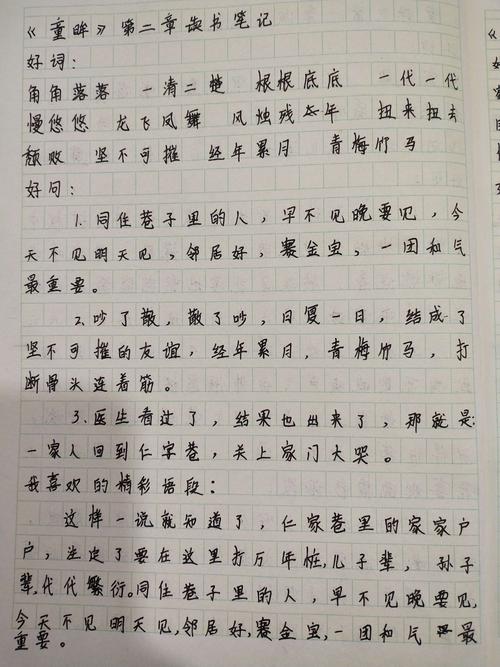 《童眸》第二章读书笔记
好词：
角角落落 一清二楚 根根底底 一代一代
慢悠悠 龙飞凤舞 风烛残年 扭来扭去
颓败 坚不可摧 经年累月 青梅竹马
好句：
1.同住巷子里的人，早不见晚要见，今
天不见明天见，邻居好，赛金宝，一团和气
最重要。
2.吵了散，散了吵，日复一日，结成了
坚不可摧的友谊，经年累月，青梅竹马，打
断骨头连着筋。
3.医生看过了，结果也出来了，那就是：
一家人回到仁字巷，关上家门大哭。
我喜欢的精彩语段：
这样一说就知道了，仁家巷里的家家户
户，注定了要在这里打万年桩，儿子辈，孙子
辈，代代繁衍。同住巷子里的人，早不见晚要见，
今天不见明天见，邻居好，赛金宝，一团和气最
重要。